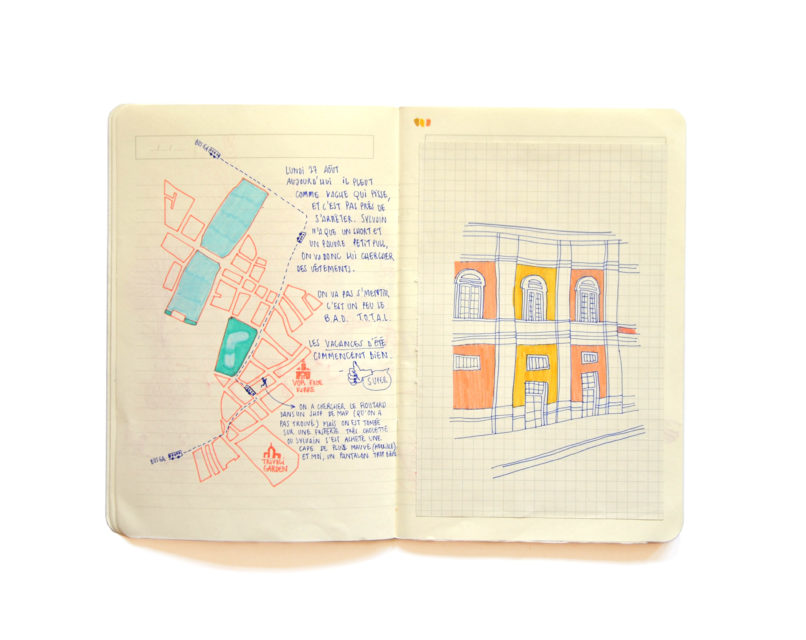 BUS 6A
LUNDI 27 AOÛT
AUJOURD'HUI IL PLEUT
COMME VACHE QUI PISSE,
ET C'EST PAS PRÈS DE
S'ARRÊTER. SYLVAIN
N'A QUE UN SHORT ET
UN PAUVRE PETIT PULL,
ON VA DONC LUI CHERCHER
DES VÊTEMENTS.
ON VA PAS S'MENTIR,
C'EST UN PEU LE
B.A.D. T.O.T.A.L.
LES VACANCES D'ÉTÉ
COMMENCENT BIEN.
SUPER
VOR FRUE
KIRKE
ON A CHERCHER LE ROUTARD
DANS UN SHOP DE MAP (QU'ON A
PAS TROUVÉ) MAIS ON EST TOMBÉ
SUR UNE FRIPERIE TRÈS CHOUETTE
OU SYLVAIN S'EST ACHETÉ UNE
CAPE DE PLUIE MAUVE
ET MOI, UN PANTALON TROP
BUS 6A
GARDEN